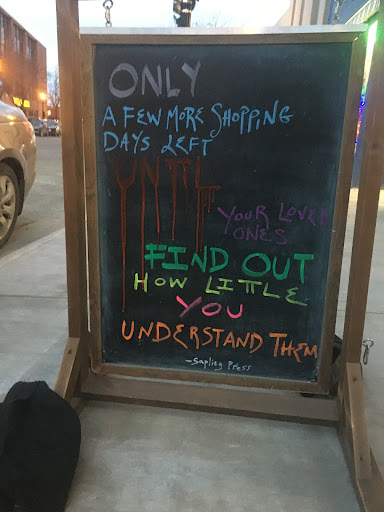 ONLY
A FEW MORE SHOPPING
DAYS LEFT
UNTIL
YOUR LOVED
ONES
FIND OUT
HOW LITTLE
YOU
UNDERSTAND THEM
-Sapling Press